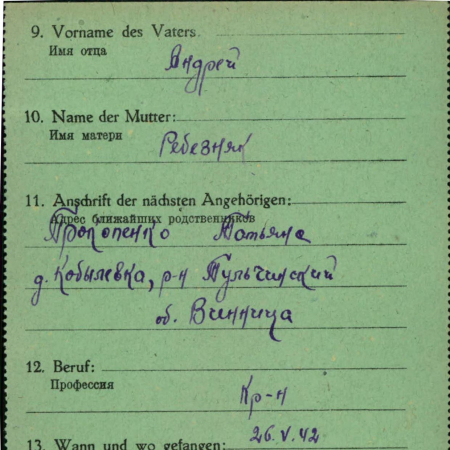 9. Vorname des Vaters:
Имя отца
Андрей
10. Name der Mutter:
Имя матери
Ребезняк
11. Anschrift der nächsten Angehörigen:
Адрес ближайших родственников
Прокопенко Татьяна
д. Кобылевка, р-н Тульчинский
об. Винница
12. Beruf:
Профессия
Кр-н
26.V.42
13. Wann und wo gefangen: